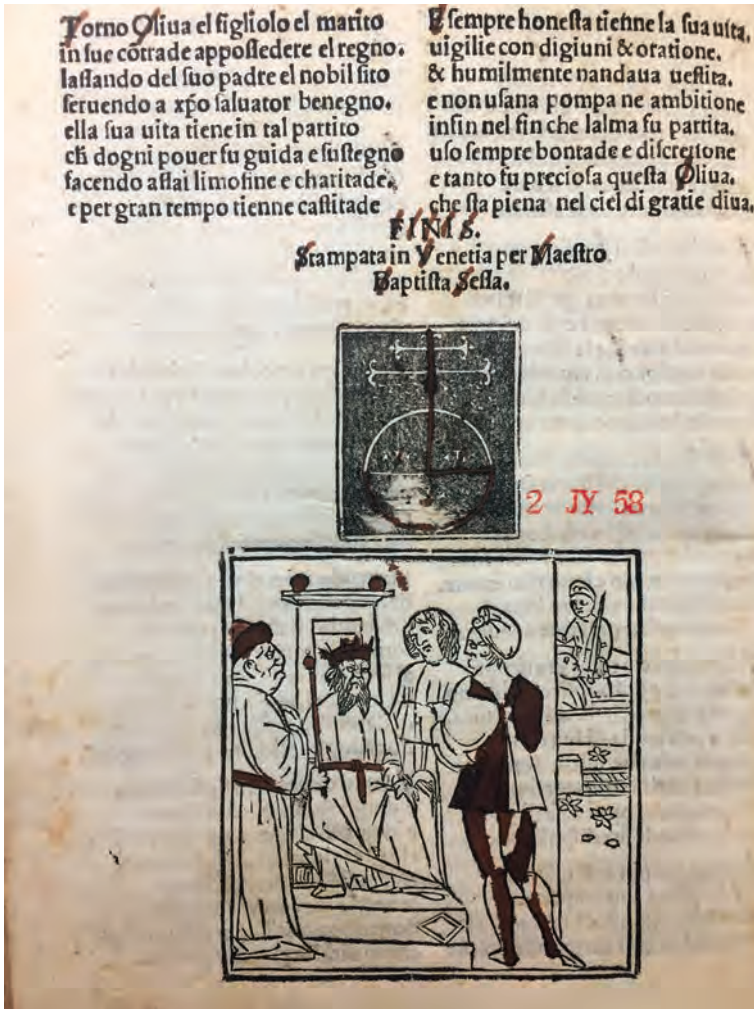 Torno Oliua el figliolo el marito
in sue cōtrade appossedere el regno.
lassando del suo padre el nobil sito
seruendo a xp̄o saluator benegno.
ella sua uita tiene in tal partito
ch̄ dogni pouer fu guida e sustegno
facendo assai limosine e charitade.
e per gran tempo tienne castitade
E sempre honesta tienne la sua uita,
uigilie con digiuni & oratione.
& humilmente nandaua uestita.
e non usaua pompa ne ambitione
insin nel fin che lalma fu partita.
uso sempre bontade e discretione
e tanto fu preciosa questa Oliua.
che sta piena nel ciel di gratie diua.
FINIS.
Stampata in Venetia per Maestro
Baptista Sessa.
2 JY 58